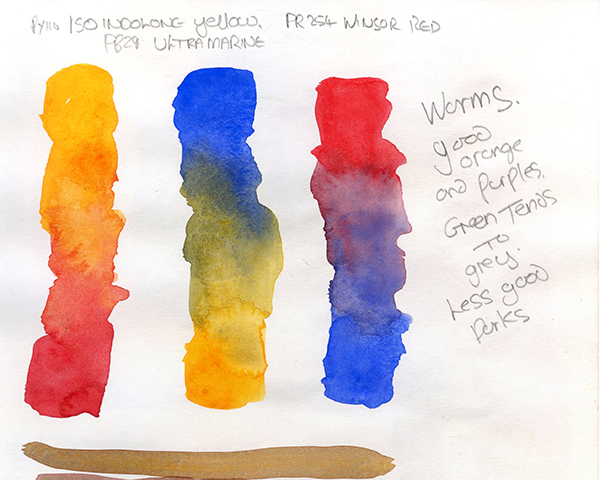 PY110 ISOINDOLONE yellow. PR254 WINSOR RED
PB29 ULTRAMARINE
Warms.
good
orange
and purples.
Green Tends
To
grey.
Less good
Darks